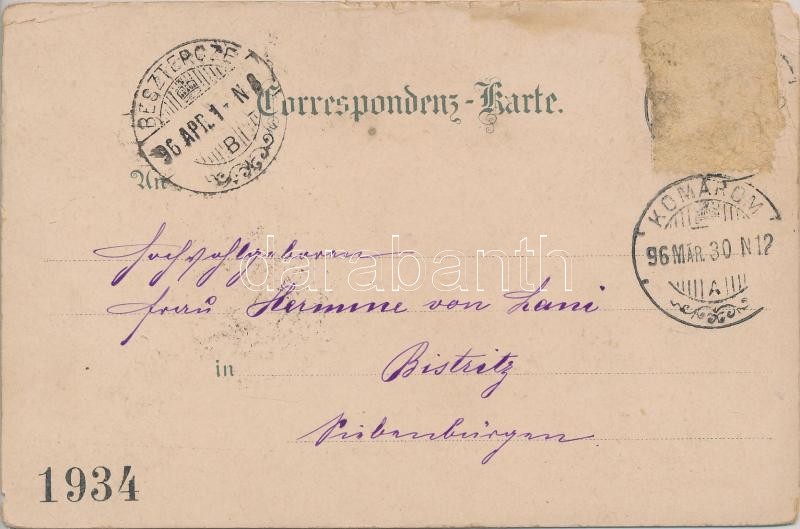 BESZTERCZE
96 APR. 1 - N 8
B
Correspondenz-Karte.
An
KOMÁROM
96 MÁR. 30 N 12
A
Hochwohlgeboren
Frau Hermine von Lani
in Bistritz
Siebenbürgen
1934
darabanth